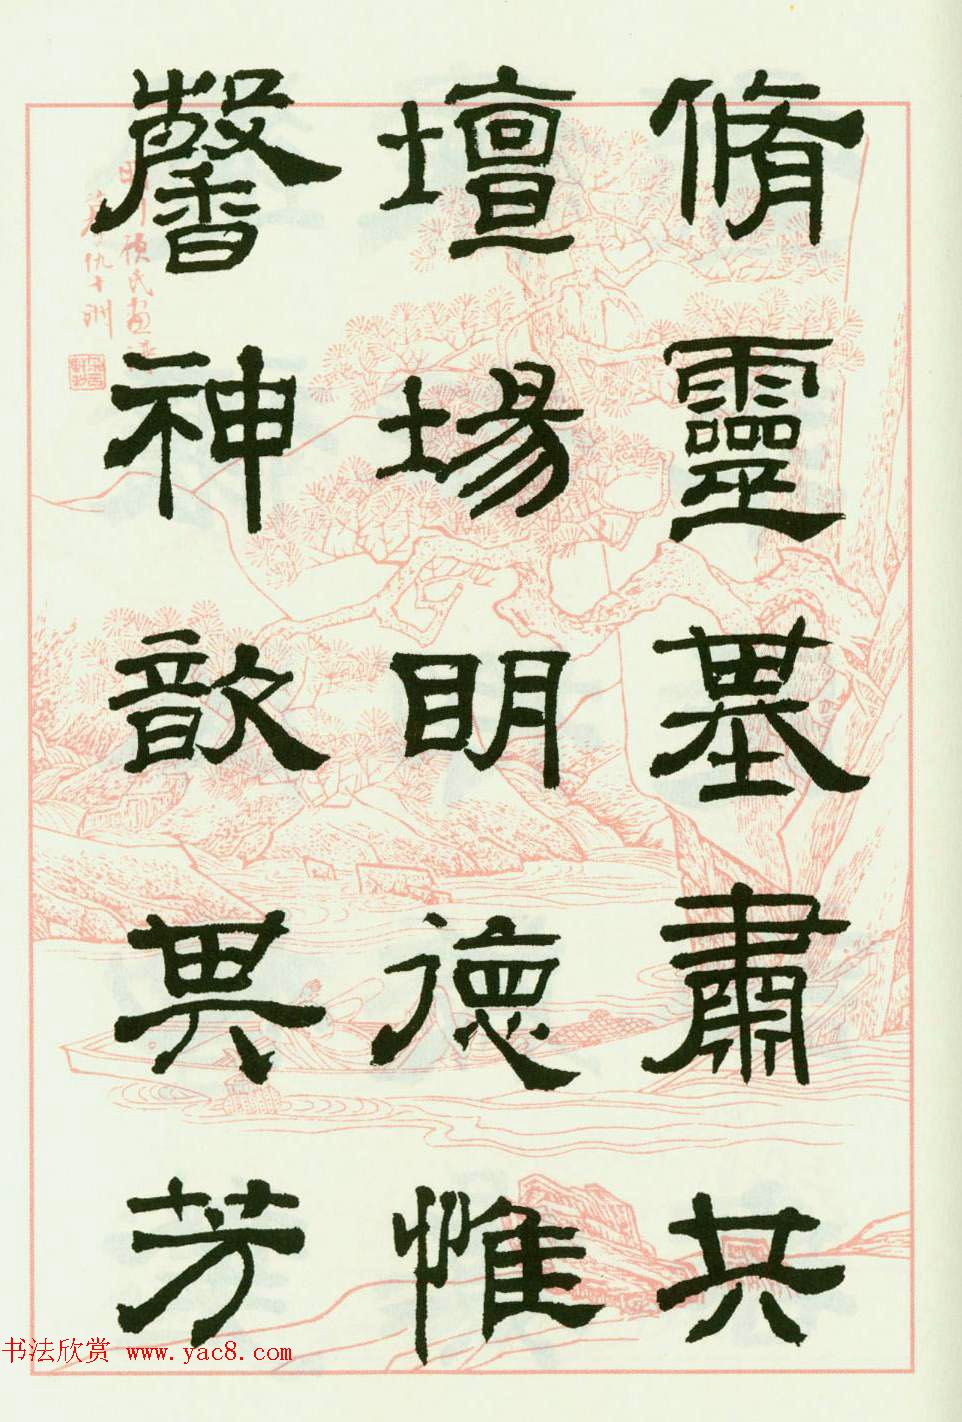 脩靈基肅共
壇場明德惟
馨神歆其芳
仇十洲
书法欣赏 www.yac8.com